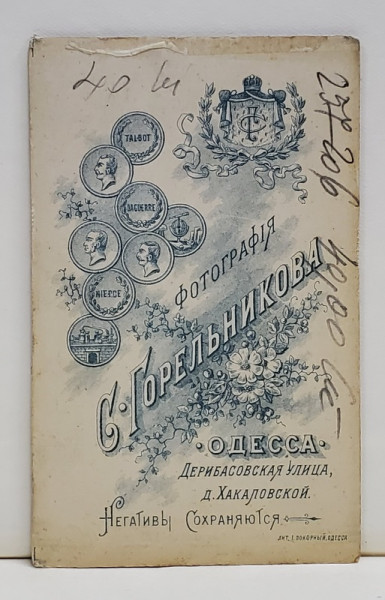 40 lei
TALBOT
DAGUERRE
NIEPCE
ФОТОГРАФІЯ
С. ГОРЕЛЬНИКОВА
·ОДЕССА·
ДЕРИБАСОВСКАЯ УЛИЦА,
Д. ХАКАЛОВСКОЙ.
НЕГАТИВЫ СОХРАНЯЮТСЯ
ЛИТ. І. ПОКОРНЫЙ, ОДЕССА